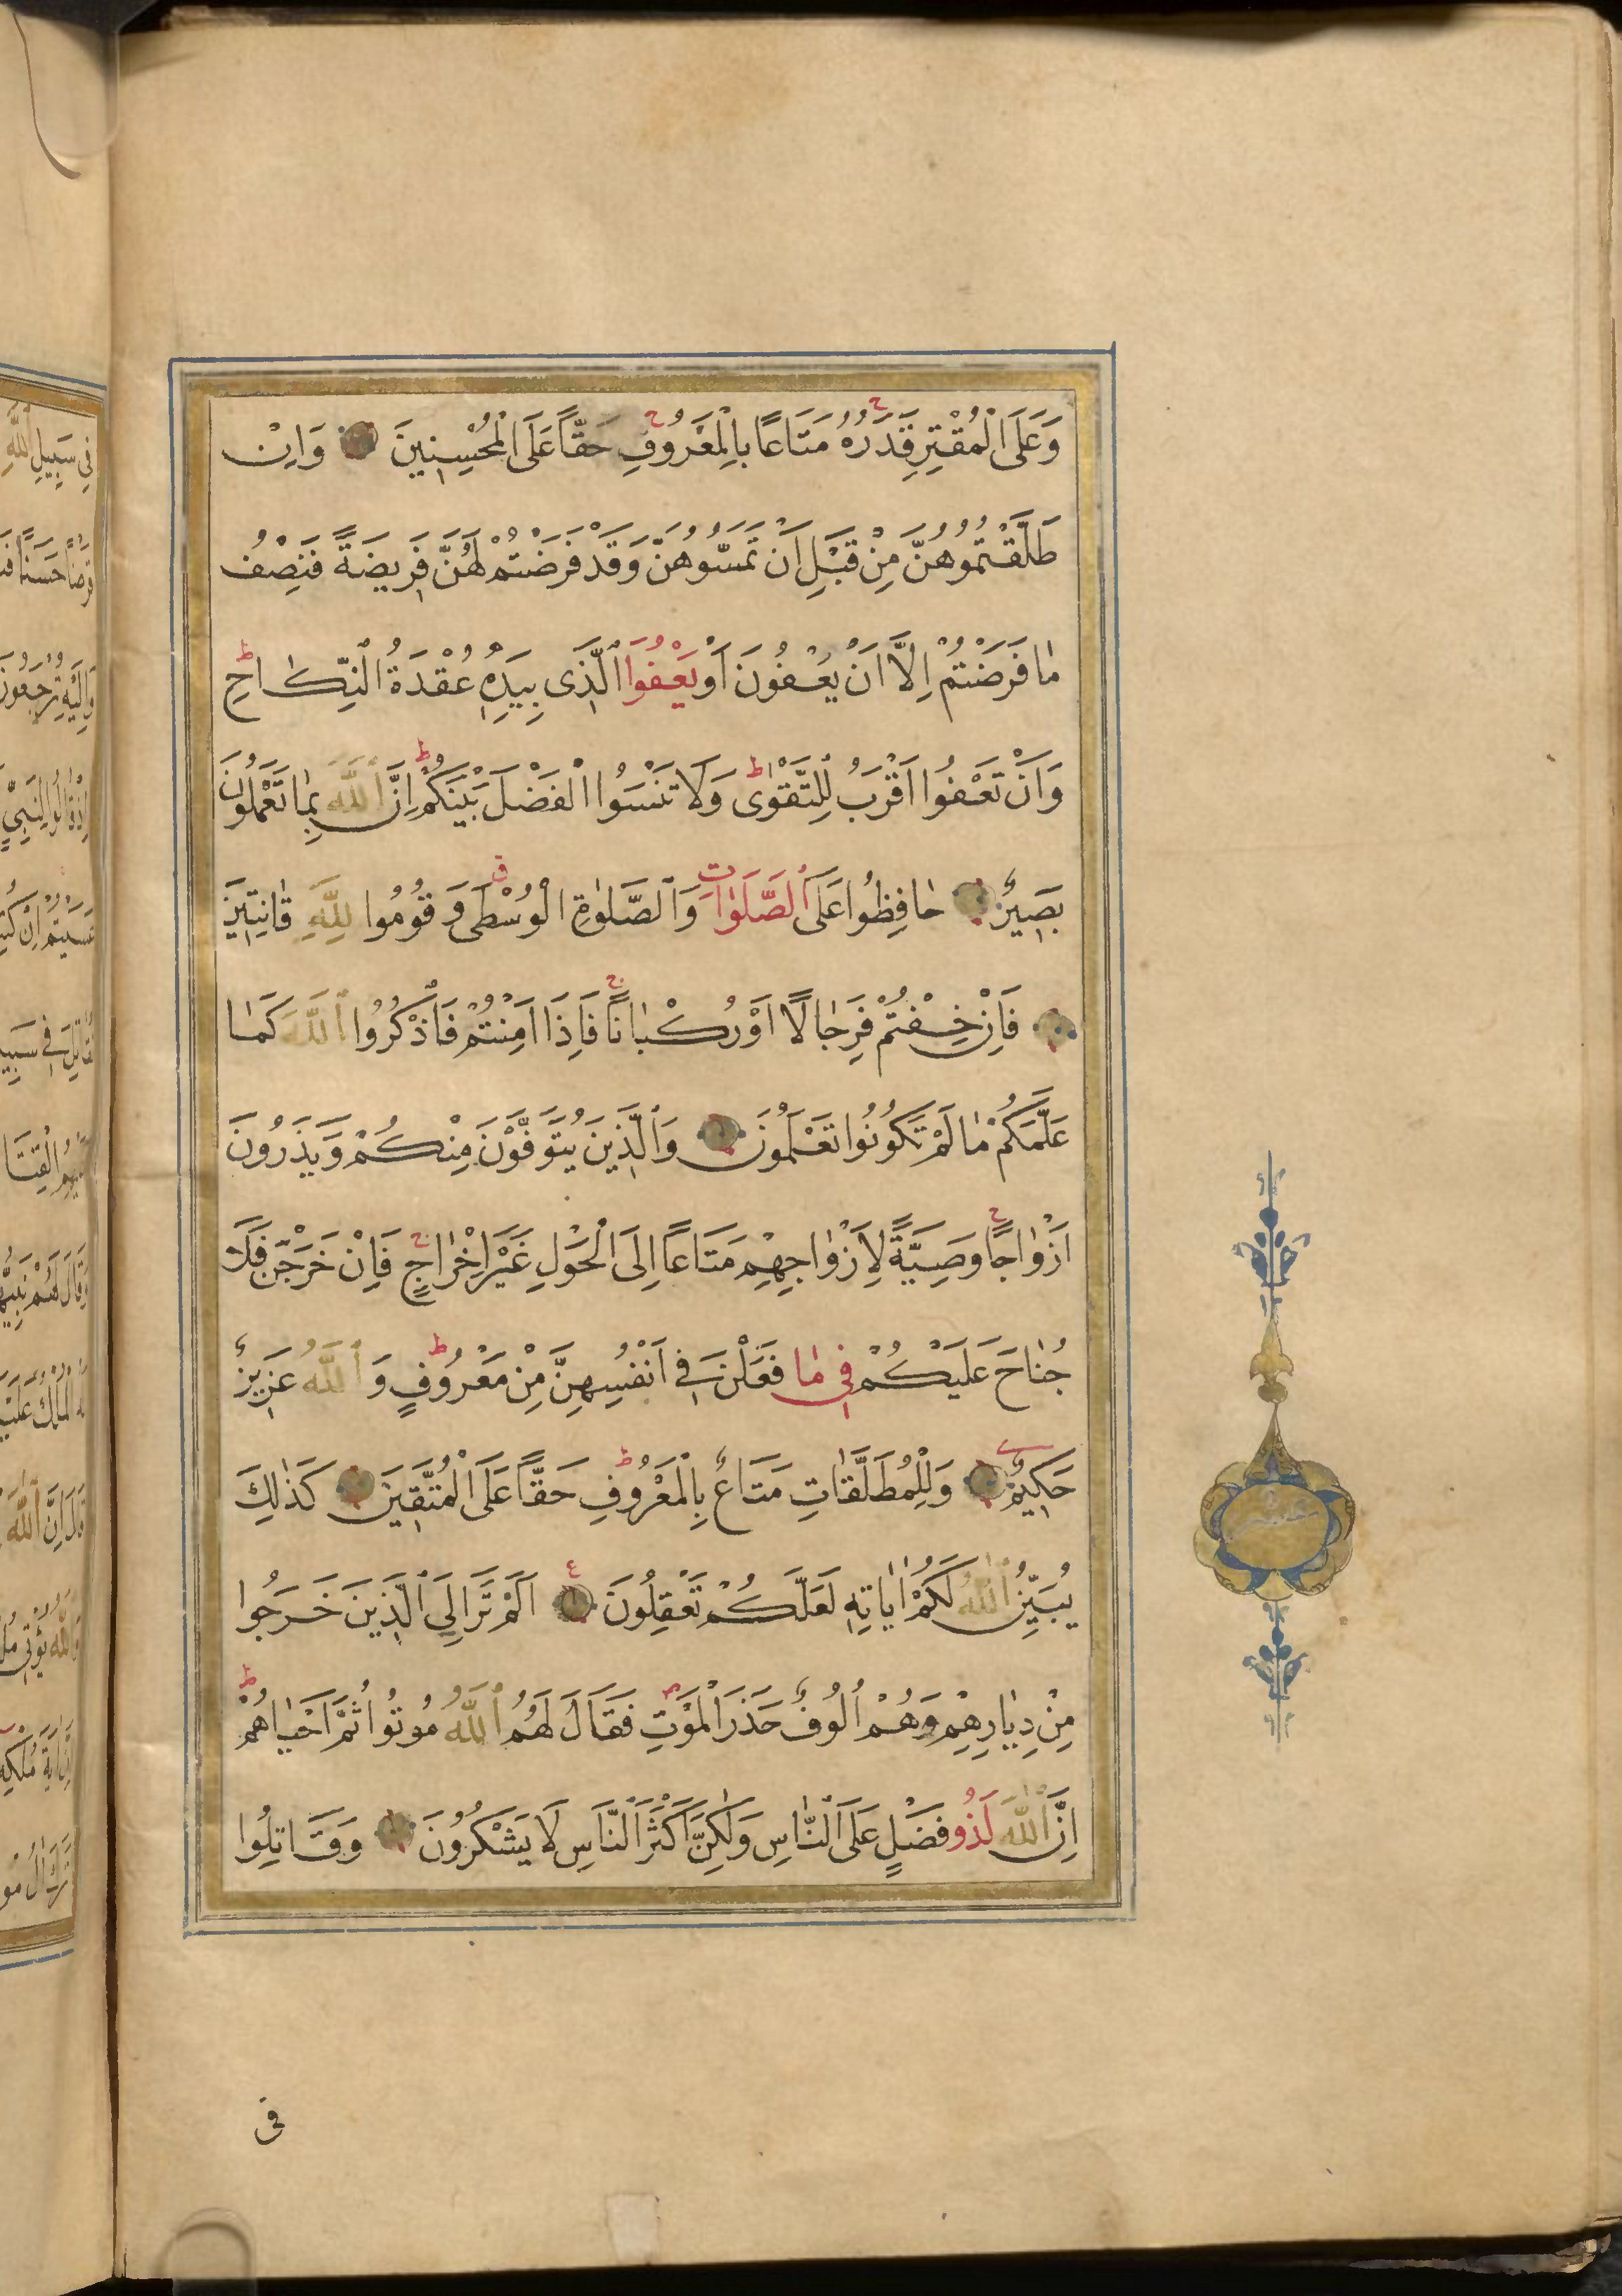 وَعَلَى الْمُقْتِرِ قَدَرُهُ مَتَاعًا بِالْمَعْرُوفِ حَقًّا عَلَى الْمُحْسِنِينَ وَاِنْ
طَلَّقْتُمُوهُنَّ مِنْ قَبْلِ اَنْ تَمَسُّوهُنَّ وَقَدْ فَرَضْتُمْ لَهُنَّ فَرِيضَةً فَنِصْفُ
مَا فَرَضْتُمْ اِلَّا اَنْ يَعْفُونَ اَوْ يَعْفُوَا الَّذِى بِيَدِهِ عُقْدَةُ النِّكَاحِ
وَاَنْ تَعْفُوا اَقْرَبُ لِلتَّقْوٰى وَلَا تَنْسَوُا الْفَضْلَ بَيْنَكُمْ اِنَّ اللّٰهَ بِمَا تَعْمَلُونَ
بَصِيرٌ حَافِظُوا عَلَى الصَّلَوَاتِ وَالصَّلٰوةِ الْوُسْطٰى وَقُومُوا لِلّٰهِ قَانِتِينَ
فَاِنْ خِفْتُمْ فَرِجَالًا اَوْ رُكْبَانًا فَاِذَا اَمِنْتُمْ فَاذْكُرُوا اللّٰهَ كَمَا
عَلَّمَكُمْ مَا لَمْ تَكُونُوا تَعْلَمُونَ وَالَّذِينَ يُتَوَفَّوْنَ مِنْكُمْ وَيَذَرُونَ
اَزْوَاجًا وَصِيَّةً لِاَزْوَاجِهِمْ مَتَاعًا اِلَى الْحَوْلِ غَيْرَ اِخْرَاجٍ فَاِنْ خَرَجْنَ فَلَا
جُنَاحَ عَلَيْكُمْ فِى مَا فَعَلْنَ فِى اَنْفُسِهِنَّ مِنْ مَعْرُوفٍ وَاللّٰهُ عَزِيزٌ
حَكِيمٌ وَلِلْمُطَلَّقَاتِ مَتَاعٌ بِالْمَعْرُوفِ حَقًّا عَلَى الْمُتَّقِينَ كَذٰلِكَ
يُبَيِّنُ اللّٰهُ لَكُمْ اٰيَاتِهِ لَعَلَّكُمْ تَعْقِلُونَ اَلَمْ تَرَ اِلَى الَّذِينَ خَرَجُوا
مِنْ دِيَارِهِمْ وَهُمْ اُلُوفٌ حَذَرَ الْمَوْتِ فَقَالَ لَهُمُ اللّٰهُ مُوتُوا ثُمَّ اَحْيَاهُمْ
اِنَّ اللّٰهَ لَذُو فَضْلٍ عَلَى النَّاسِ وَلٰكِنَّ اَكْثَرَ النَّاسِ لَا يَشْكُرُونَ وَقَاتِلُوا
فى